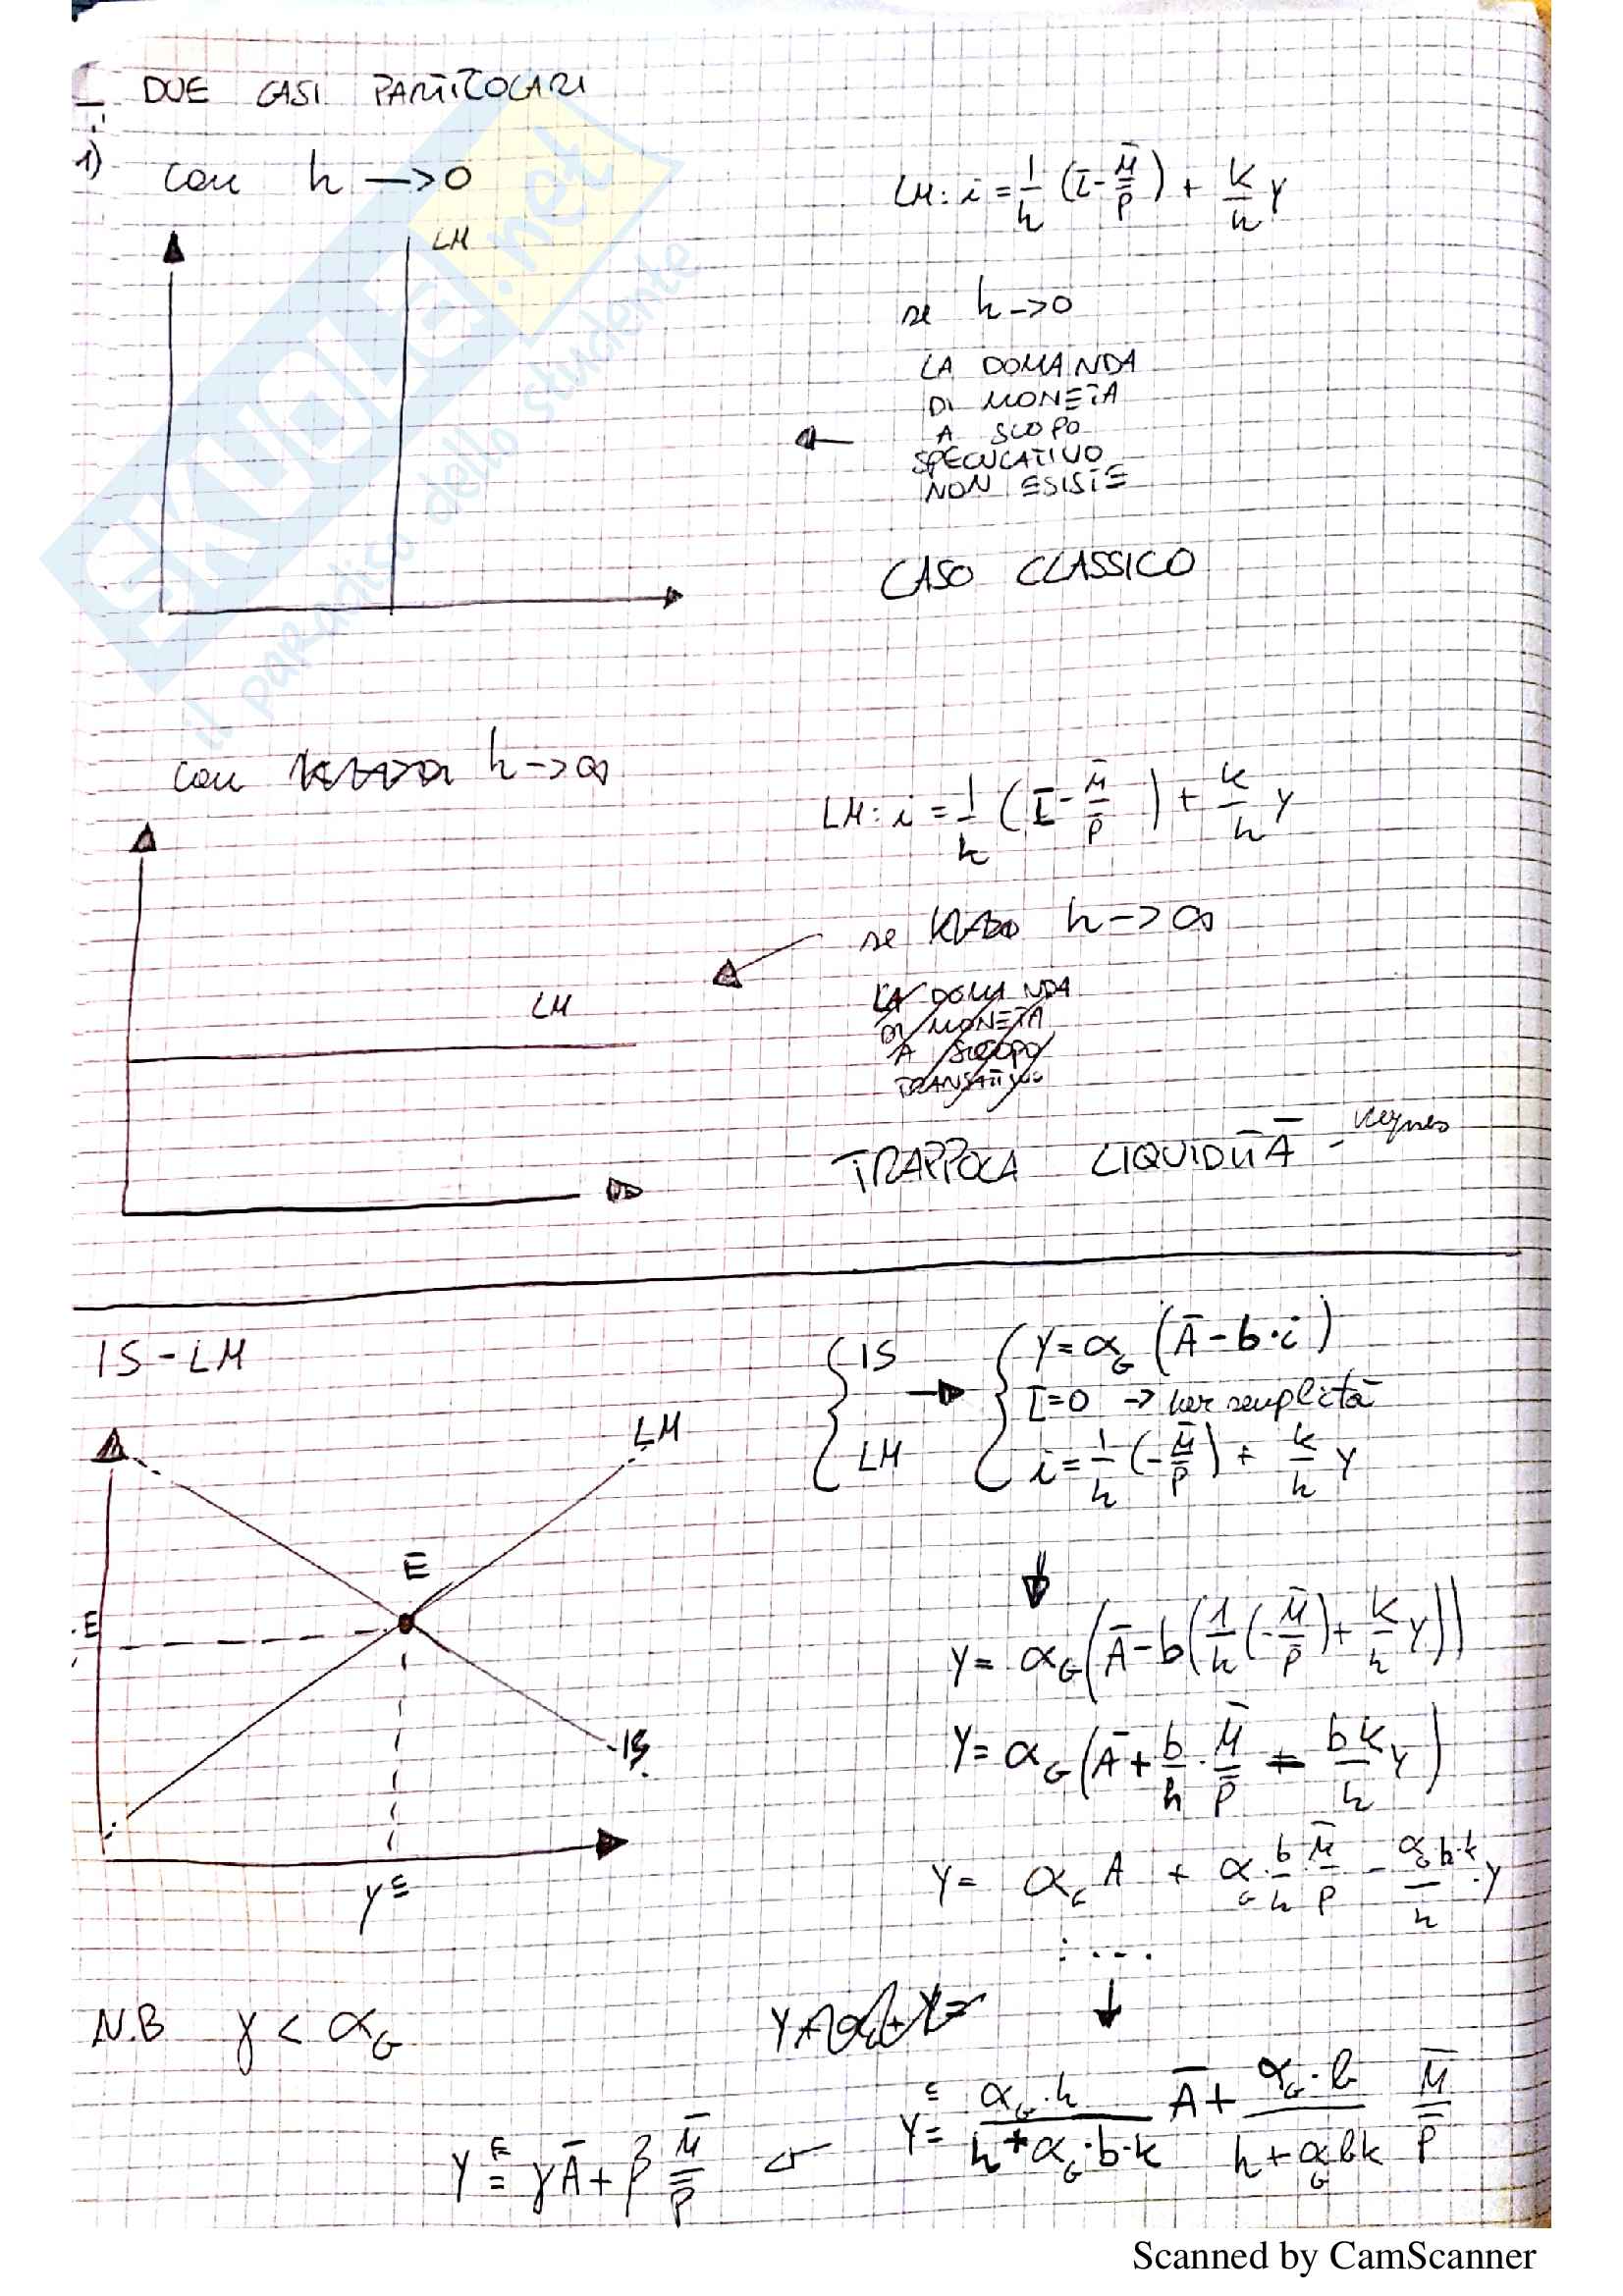 DUE CASI PARTICOLARI
1) con h → 0
LM
LM: i = 1/h (L̄ - M̄/P̄) + k/h Y
se h → 0
LA DOMANDA
DI MONETA
A SCOPO
SPECULATIVO
NON ESISTE
CASO CLASSICO
con h → ∞
LM: i = 1/h (L̄ - M̄/P̄) + k/h Y
se h → ∞
LA DOMANDA
DI MONETA
A SCOPO
TRANSATIVO
LM
TRAPPOLA LIQUIDITÀ - Keynes
IS-LM
{ IS → { Y = α_G (Ā - b·i)
L̄ = 0 → per semplicità
LM
i = 1/h (-M̄/P̄) + k/h Y
LM
E
E
IS
Y^E
Y = α_G (Ā - b(1/h (-M̄/P̄) + k/h Y))
Y = α_G (Ā + b/h · M̄/P̄ - bk/h Y)
Y = α_G A + α_G · b/h M̄/P̄ - α_G b·k/h · Y
: ....
N.B γ < α_G
Y^E = α_G·h / h + α_G·b·k Ā + α_G·b / h + α_G bk M̄/P̄
Y^E = γĀ + β M̄/P̄
SKUOLA.net
il paradiso dello studente
Scanned by CamScanner